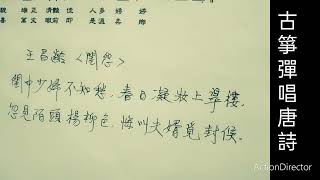 眼前 即 是溫 柔 鄉
王昌齡〈閨怨〉
閨中少婦不知愁，春日凝妝上翠樓。
忽見陌頭楊柳色，悔叫夫婿覓封候。
古箏彈唱唐詩
ActionDirector